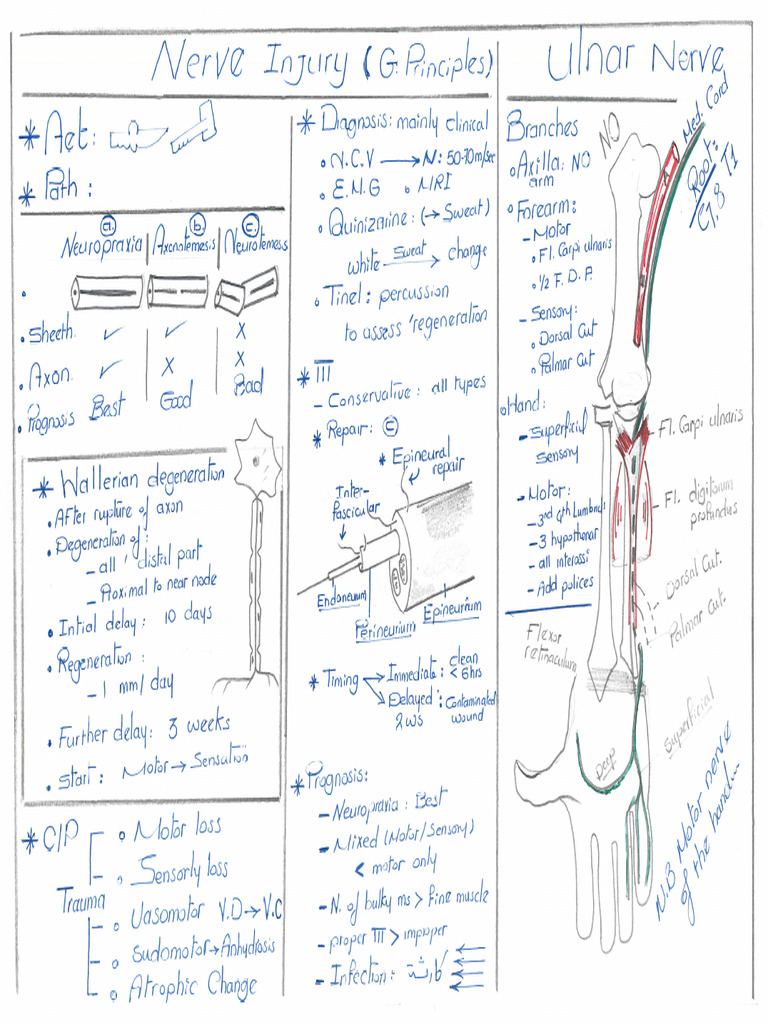 Nerve Injury (G. Principles)
Ulnar Nerve
* Aet:
* Path:
a.
b.
c.
Neuropraxia
Axonotemesis
Neurotemesis
• Sheeth
✓
✓
X
• Axon
✓
X
X
• Prognosis
Best
Good
Bad
* Wallerian degeneration
• After rupture of axon
• Degeneration of:
- all distal part
- Proximal to near node
• Initial delay: 10 days
• Regeneration:
- 1 mm/day
• Further delay: 3 weeks
• Start: Motor → Sensation
* C/P
• Motor loss
• Sensorly loss
Trauma
• Vasomotor V.D → V.C
• Sudomotor → Anhydrosis
• Atrophic Change
* Diagnosis: mainly clinical
• N.C.V → N: 50-70 m/sec
• E.M.G • MRI
• Quinizarine: (→ Sweat)
white Sweat → change
• Tinel: percussion
to assess regeneration
* TTT
- Conservative: all types
* Repair: C
* Epineural
repair
Inter-
fascicular
Endoneurium
Perineurium
Epineurium
* Timing → Immediate: clean
< 6hrs
Delayed: Contaminated
2 ws wound
* Prognosis:
- Neuropraxia: Best
- Mixed (Motor/Sensory)
< motor only
- N. of bulky ms > fine muscle
- proper TTT > improper
- Infection:
Branches
• Axilla: NO
arm
• Forearm:
- Motor
• Fl. Carpi ulnaris
• ½ F.D.P.
- Sensory:
• Dorsal Cut
• Palmar Cut
• Hand:
- Superficial
Sensory
- Motor:
- 3rd 4th Lumbricals
- 3 hypothenar
- all interossi
- Add polices
NO
Med. Cord
Root:
C7.8 T1
Fl. Carpi ulnaris
Fl. digitorum
profundus
Dorsal Cut.
Palmar Cut.
Flexor
retinaculum
Deep
Superficial
N.B Motor nerve
of the hand...